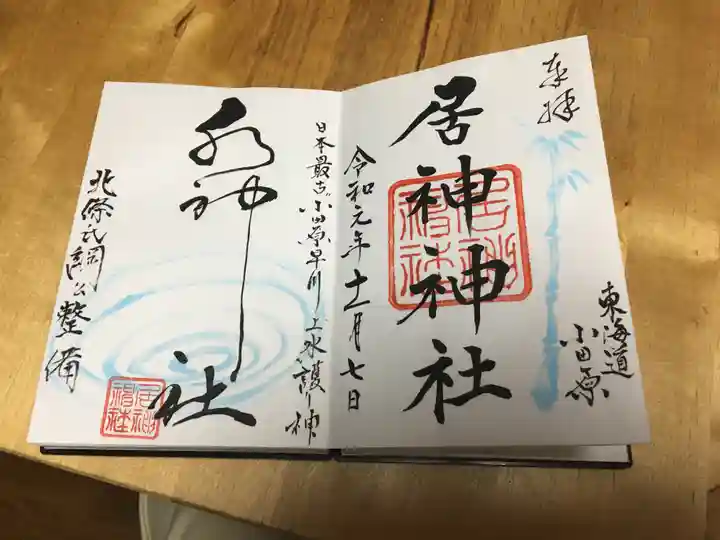 奉拝
東海道
小田原
居神神社
居神
神社
令和元年十一月七日
日本最古小田原早川上水護り神
水神社
居神
神社
北條氏綱公整備